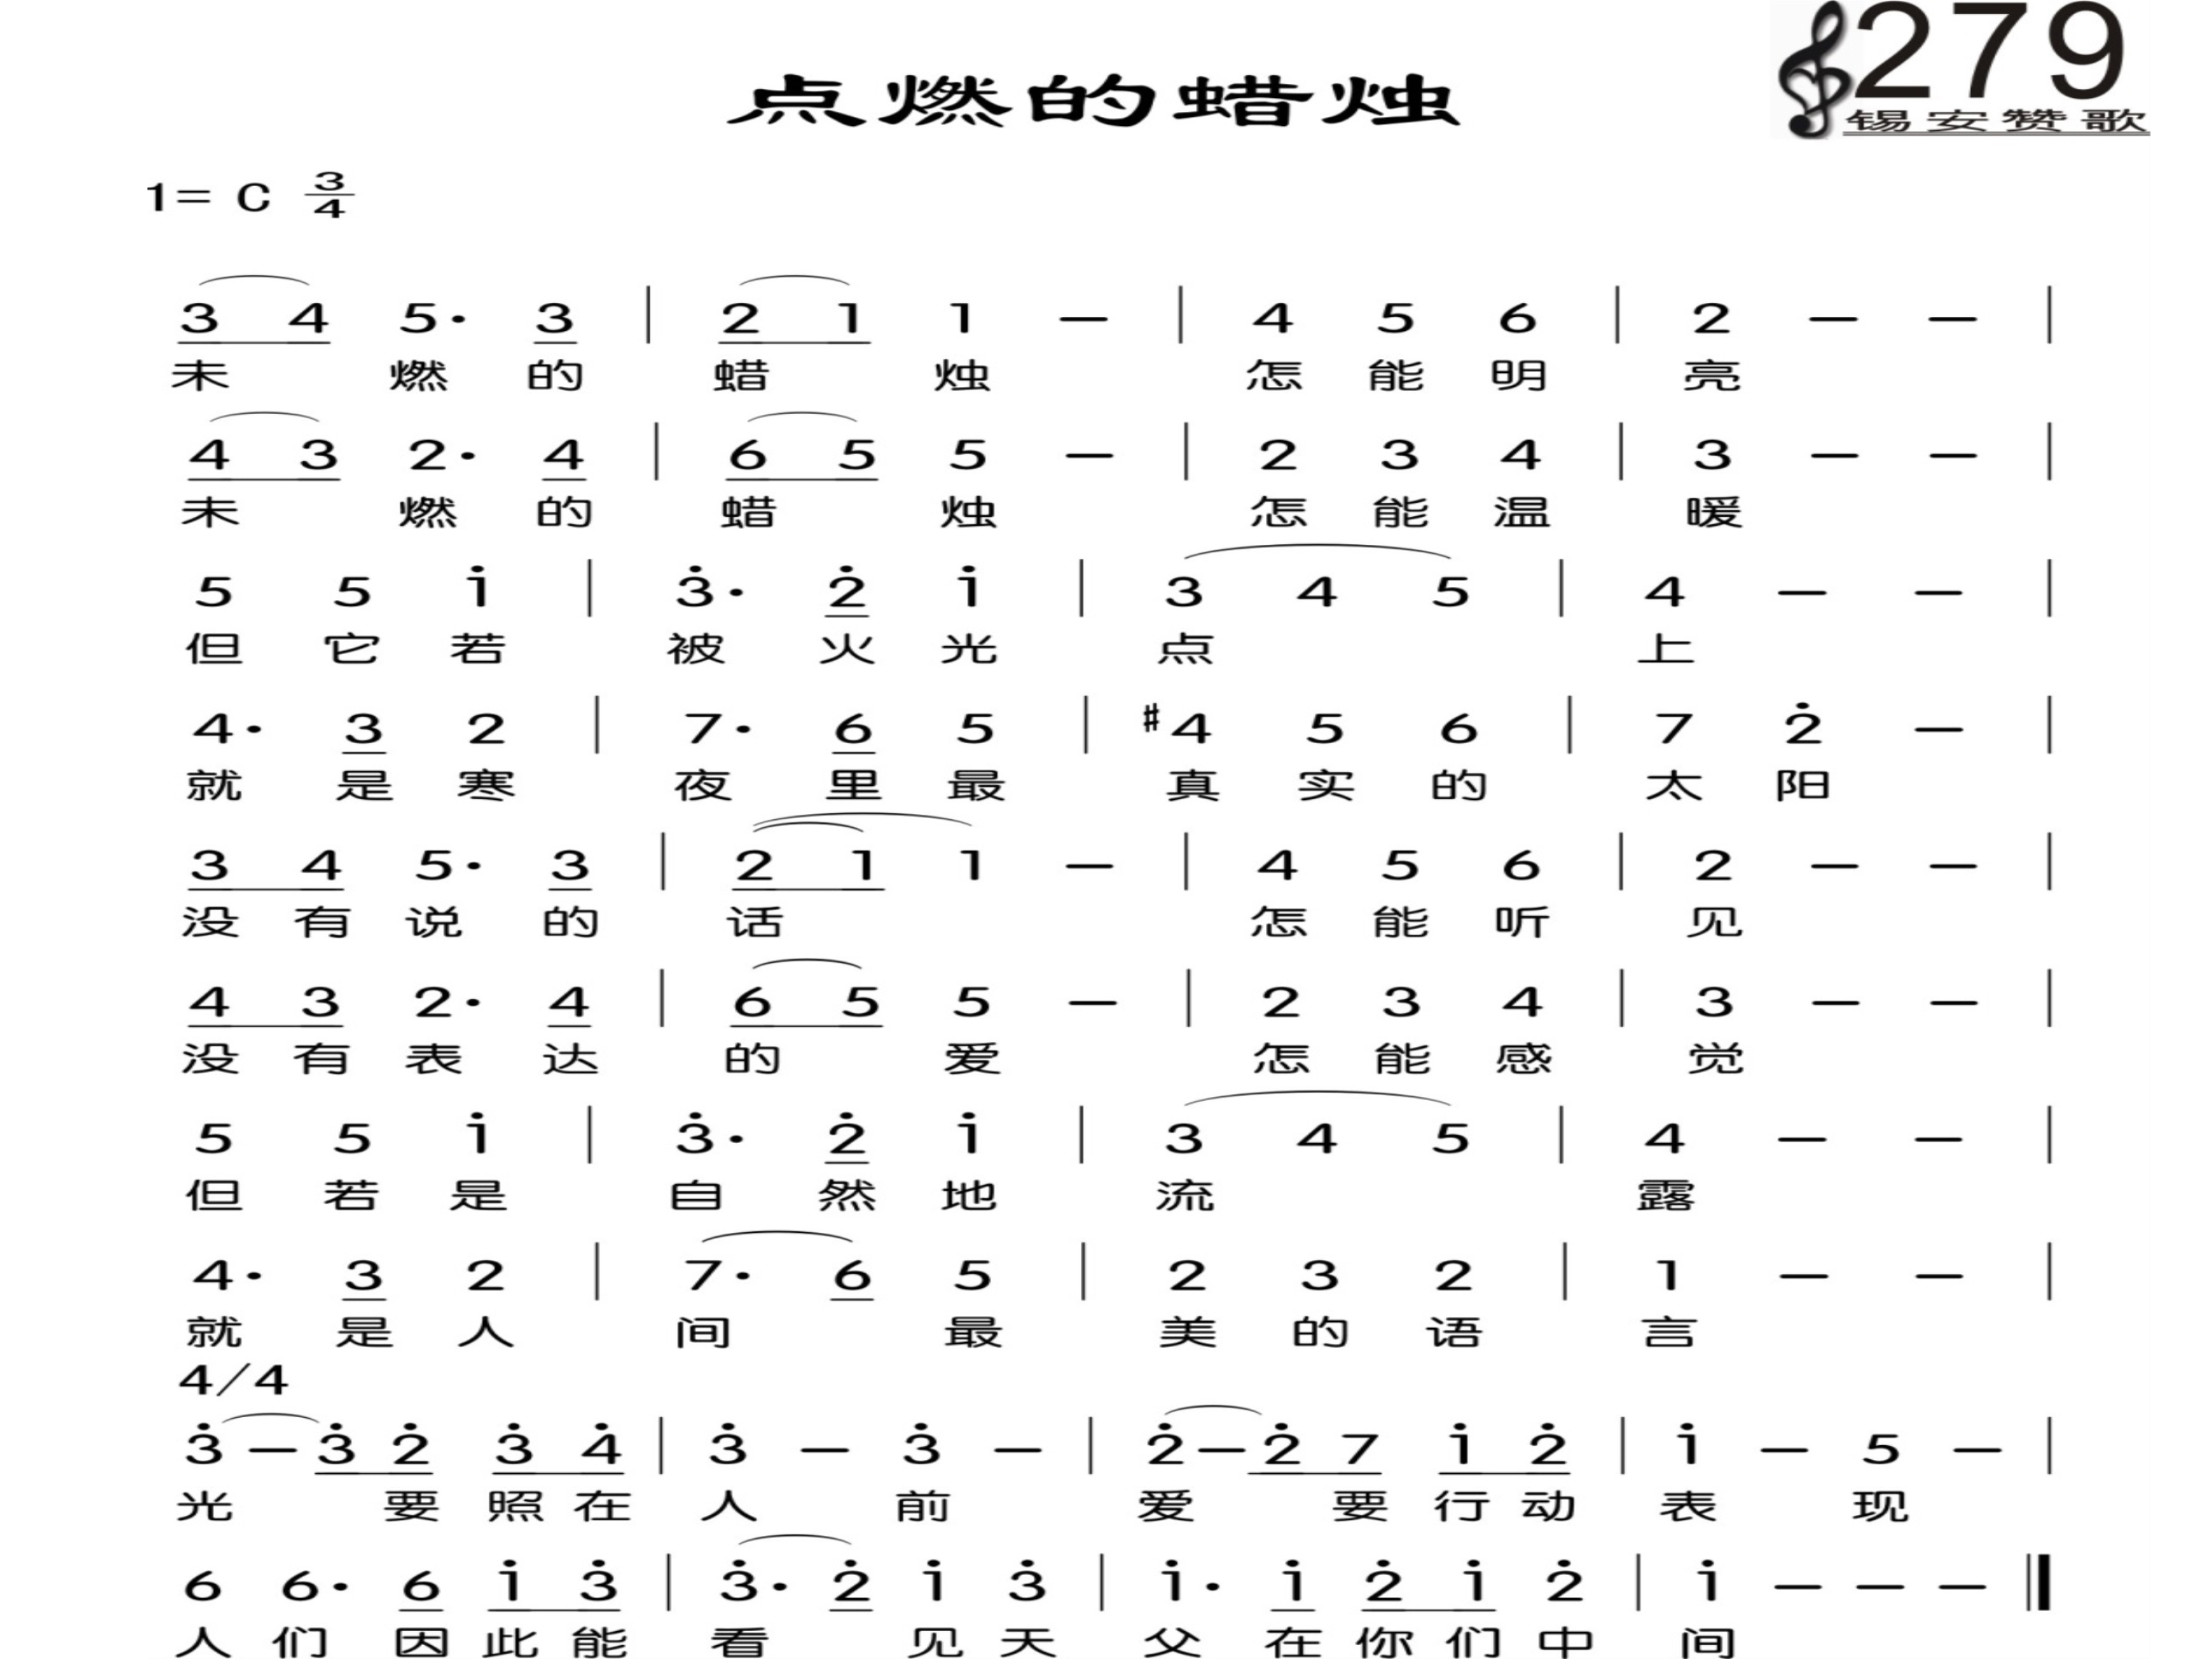 279
点燃的蜡烛
锡安赞歌
1= C 3/4
3 4 5· 3 | 2 1 1 — | 4 5 6 | 2 — — |
未 燃 的 蜡 烛 怎 能 明 亮
4 3 2· 4 | 6 5 5 — | 2 3 4 | 3 — — |
未 燃 的 蜡 烛 怎 能 温 暖
5 5 i | 3̇· 2̇ i | 3 4 5 | 4 — — |
但 它 若 被 火 光 点 上
4· 3 2 | 7· 6 5 | #4 5 6 | 7 2̇ — |
就 是 寒 夜 里 最 真 实 的 太 阳
3 4 5· 3 | 2 1 1 — | 4 5 6 | 2 — — |
没 有 说 的 话 怎 能 听 见
4 3 2· 4 | 6 5 5 — | 2 3 4 | 3 — — |
没 有 表 达 的 爱 怎 能 感 觉
5 5 i | 3̇· 2̇ i | 3 4 5 | 4 — — |
但 若 是 自 然 地 流 露
4· 3 2 | 7· 6 5 | 2 3 2 | 1 — — |
就 是 人 间 最 美 的 语 言
4/4
3̇ — 3̇ 2̇ 3̇ 4̇ | 3̇ — 3̇ — | 2̇ — 2̇ 7 i 2̇ | i — 5 — |
光 要 照 在 人 前 爱 要 行 动 表 现
6 6· 6 i 3̇ | 3̇· 2̇ i 3̇ | i· i 2̇ i 2̇ | i — — — ‖
人 们 因 此 能 看 见 天 父 在 你 们 中 间